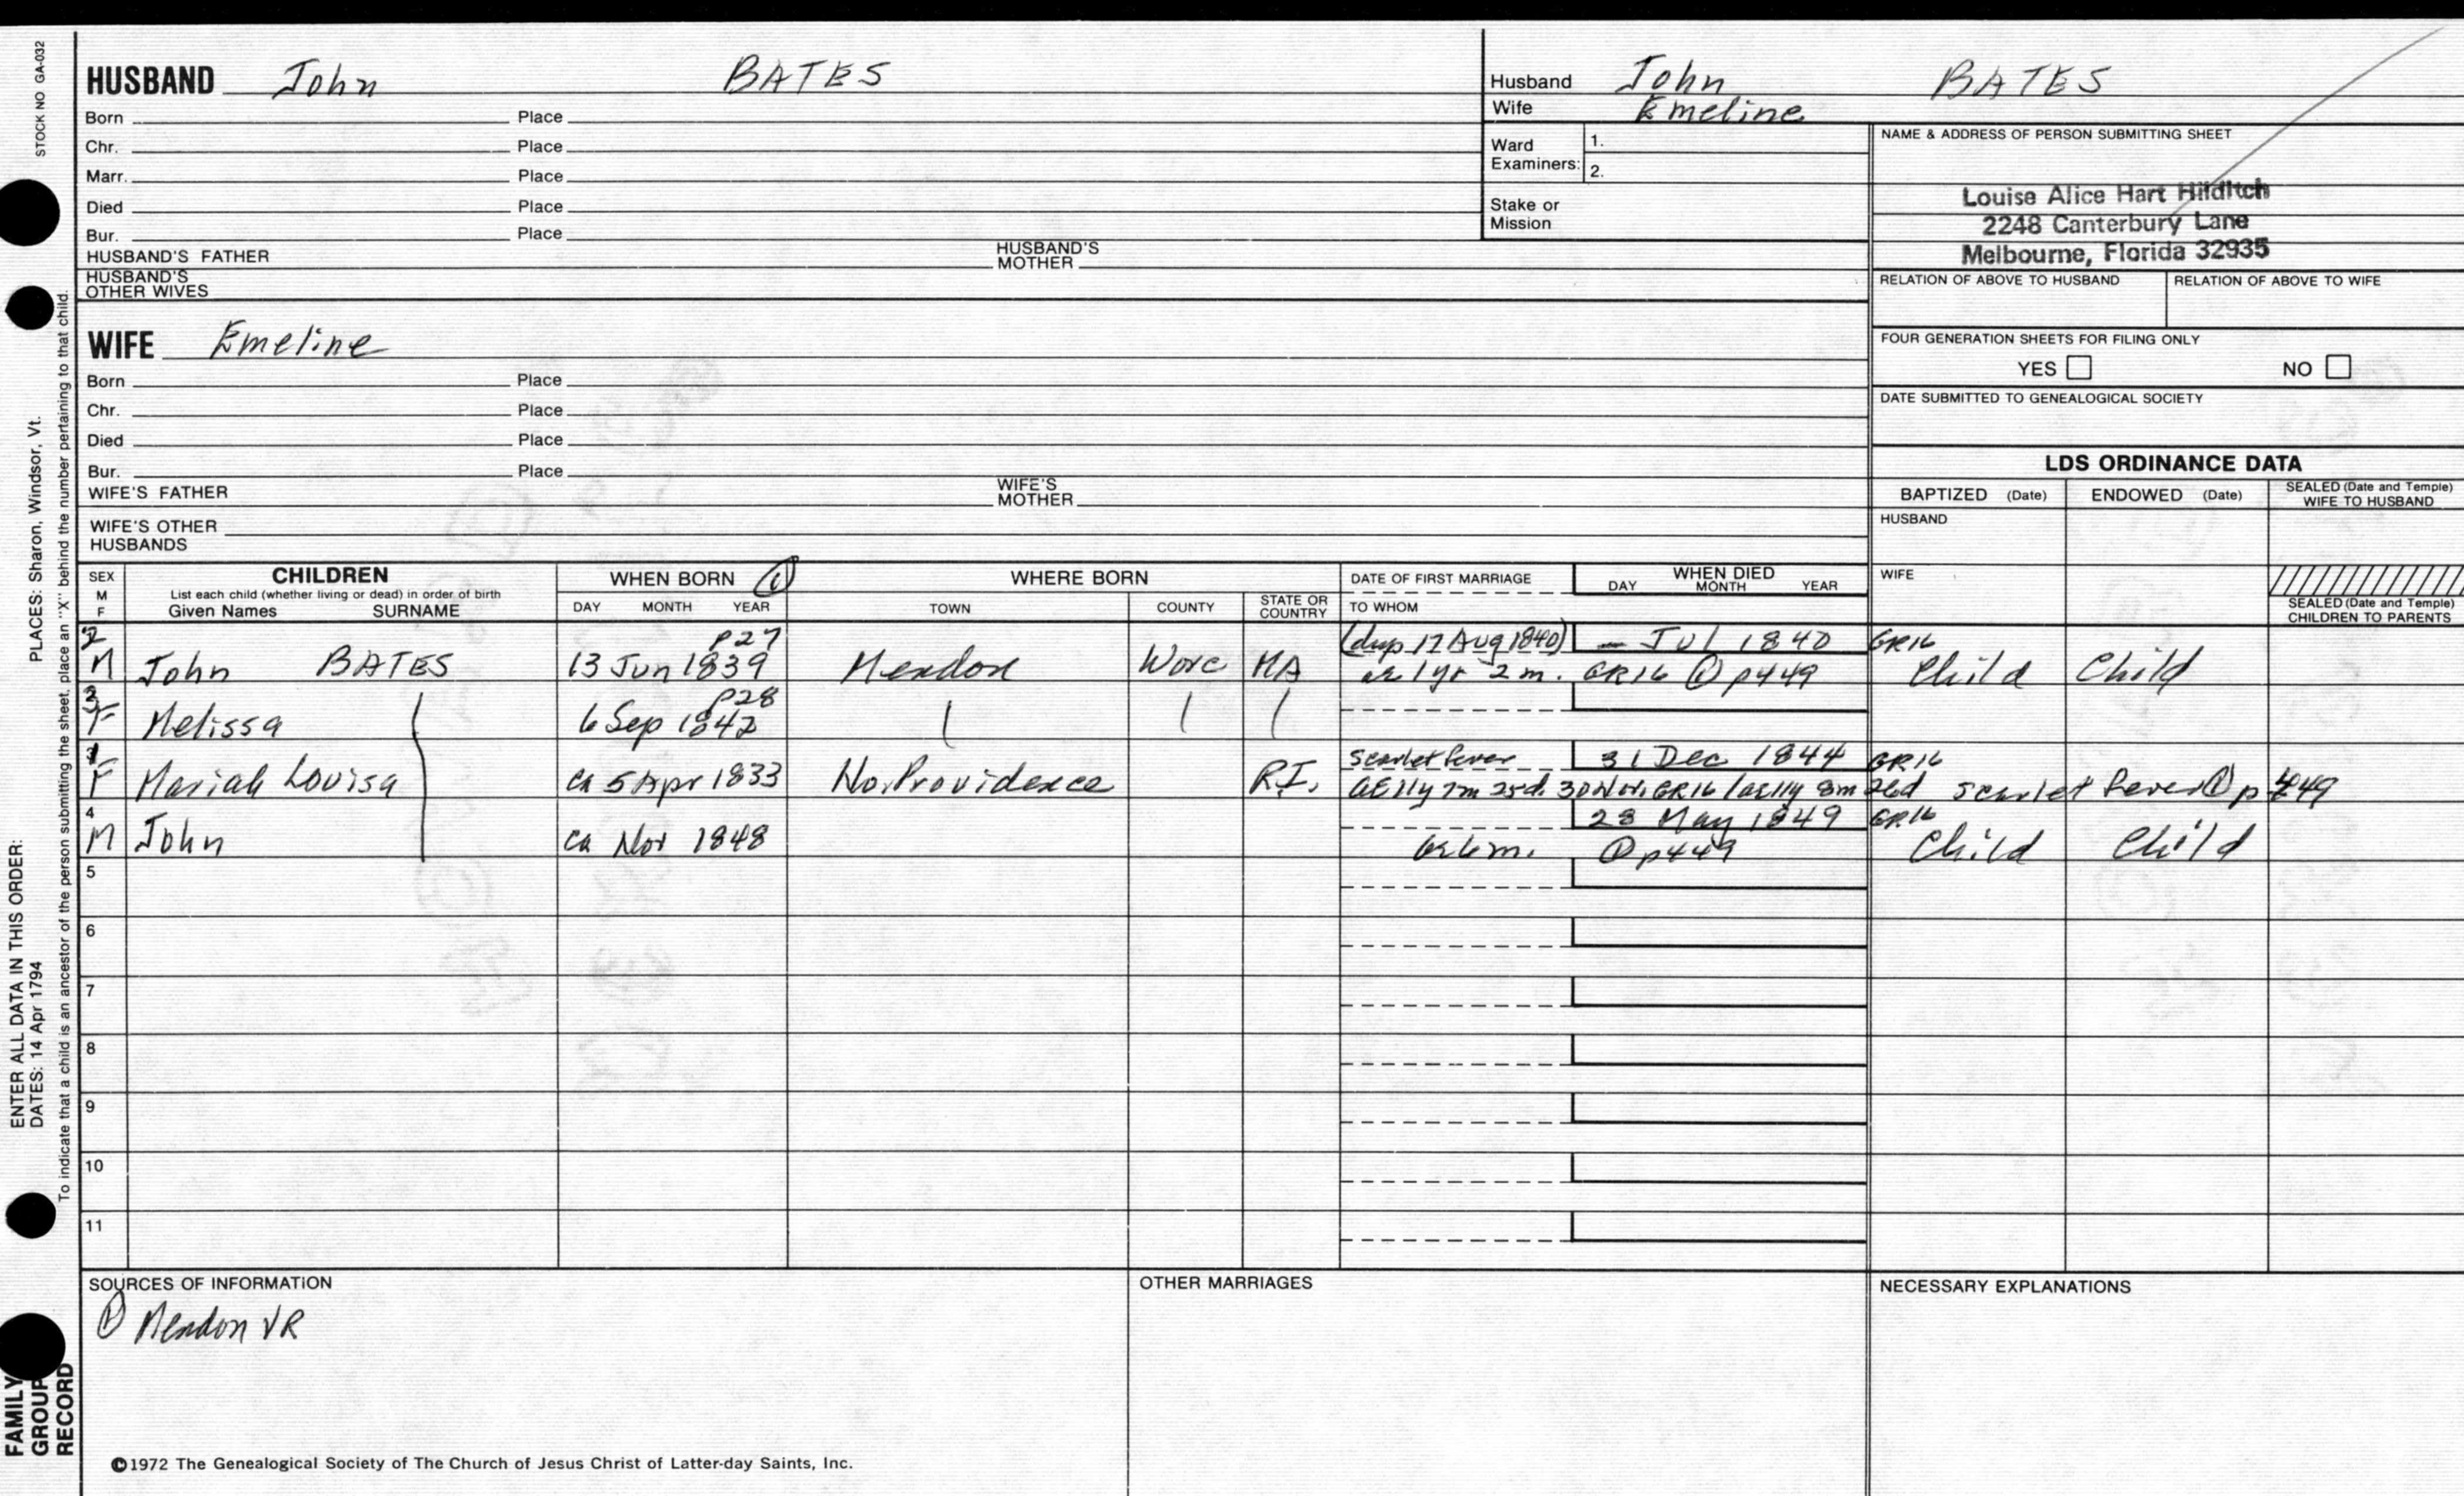 STOCK NO GA-032
PLACES: Sharon, Windsor, Vt.
ENTER ALL DATA IN THIS ORDER:
DATES: 14 Apr 1794
To indicate that a child is an ancestor of the person submitting the sheet, place an "X" behind the number pertaining to that child.
FAMILY GROUP RECORD
HUSBAND John BATES
Born Place
Chr. Place
Marr. Place
Died Place
Bur. Place
HUSBAND'S FATHER HUSBAND'S MOTHER
HUSBAND'S OTHER WIVES
WIFE Emeline
Born Place
Chr. Place
Died Place
Bur. Place
WIFE'S FATHER WIFE'S MOTHER
WIFE'S OTHER HUSBANDS
Husband John BATES
Wife Emeline
Ward Examiners: 1.
2.
Stake or Mission
NAME & ADDRESS OF PERSON SUBMITTING SHEET
Louise Alice Hart Hilditch
2248 Canterbury Lane
Melbourne, Florida 32935
RELATION OF ABOVE TO HUSBAND RELATION OF ABOVE TO WIFE
FOUR GENERATION SHEETS FOR FILING ONLY
YES NO
DATE SUBMITTED TO GENEALOGICAL SOCIETY
LDS ORDINANCE DATA
BAPTIZED (Date) ENDOWED (Date) SEALED (Date and Temple) WIFE TO HUSBAND
HUSBAND
WIFE
SEALED (Date and Temple) CHILDREN TO PARENTS
SEX M F CHILDREN WHEN BORN ① WHERE BORN DATE OF FIRST MARRIAGE WHEN DIED
List each child (whether living or dead) in order of birth
Given Names SURNAME DAY MONTH YEAR TOWN COUNTY STATE OR COUNTRY TO WHOM DAY MONTH YEAR
2 p27 (dup 17 Aug 1840) — Jul 1840 GR16
M John BATES 13 Jun 1839 Mendon Worc MA ae 1yr 2m. GR16 ① p449 Child Child
3 p28
F Melissa 6 Sep 1842
1 Scarlet fever 31 Dec 1844 GR16
F Mariah Louisa ca 5 Apr 1833 No. Providence R.I. AE 11y 7m 25d. 30 Nov. GR16 / ae 11y 8m 26d scarlet fever ① p 449
4 28 May 1849 GR16
M John ca Nov 1848 ae 6m. ① p449 Child Child
5
6
7
8
9
10
11
SOURCES OF INFORMATION OTHER MARRIAGES NECESSARY EXPLANATIONS
① Mendon VR
©1972 The Genealogical Society of The Church of Jesus Christ of Latter-day Saints, Inc.